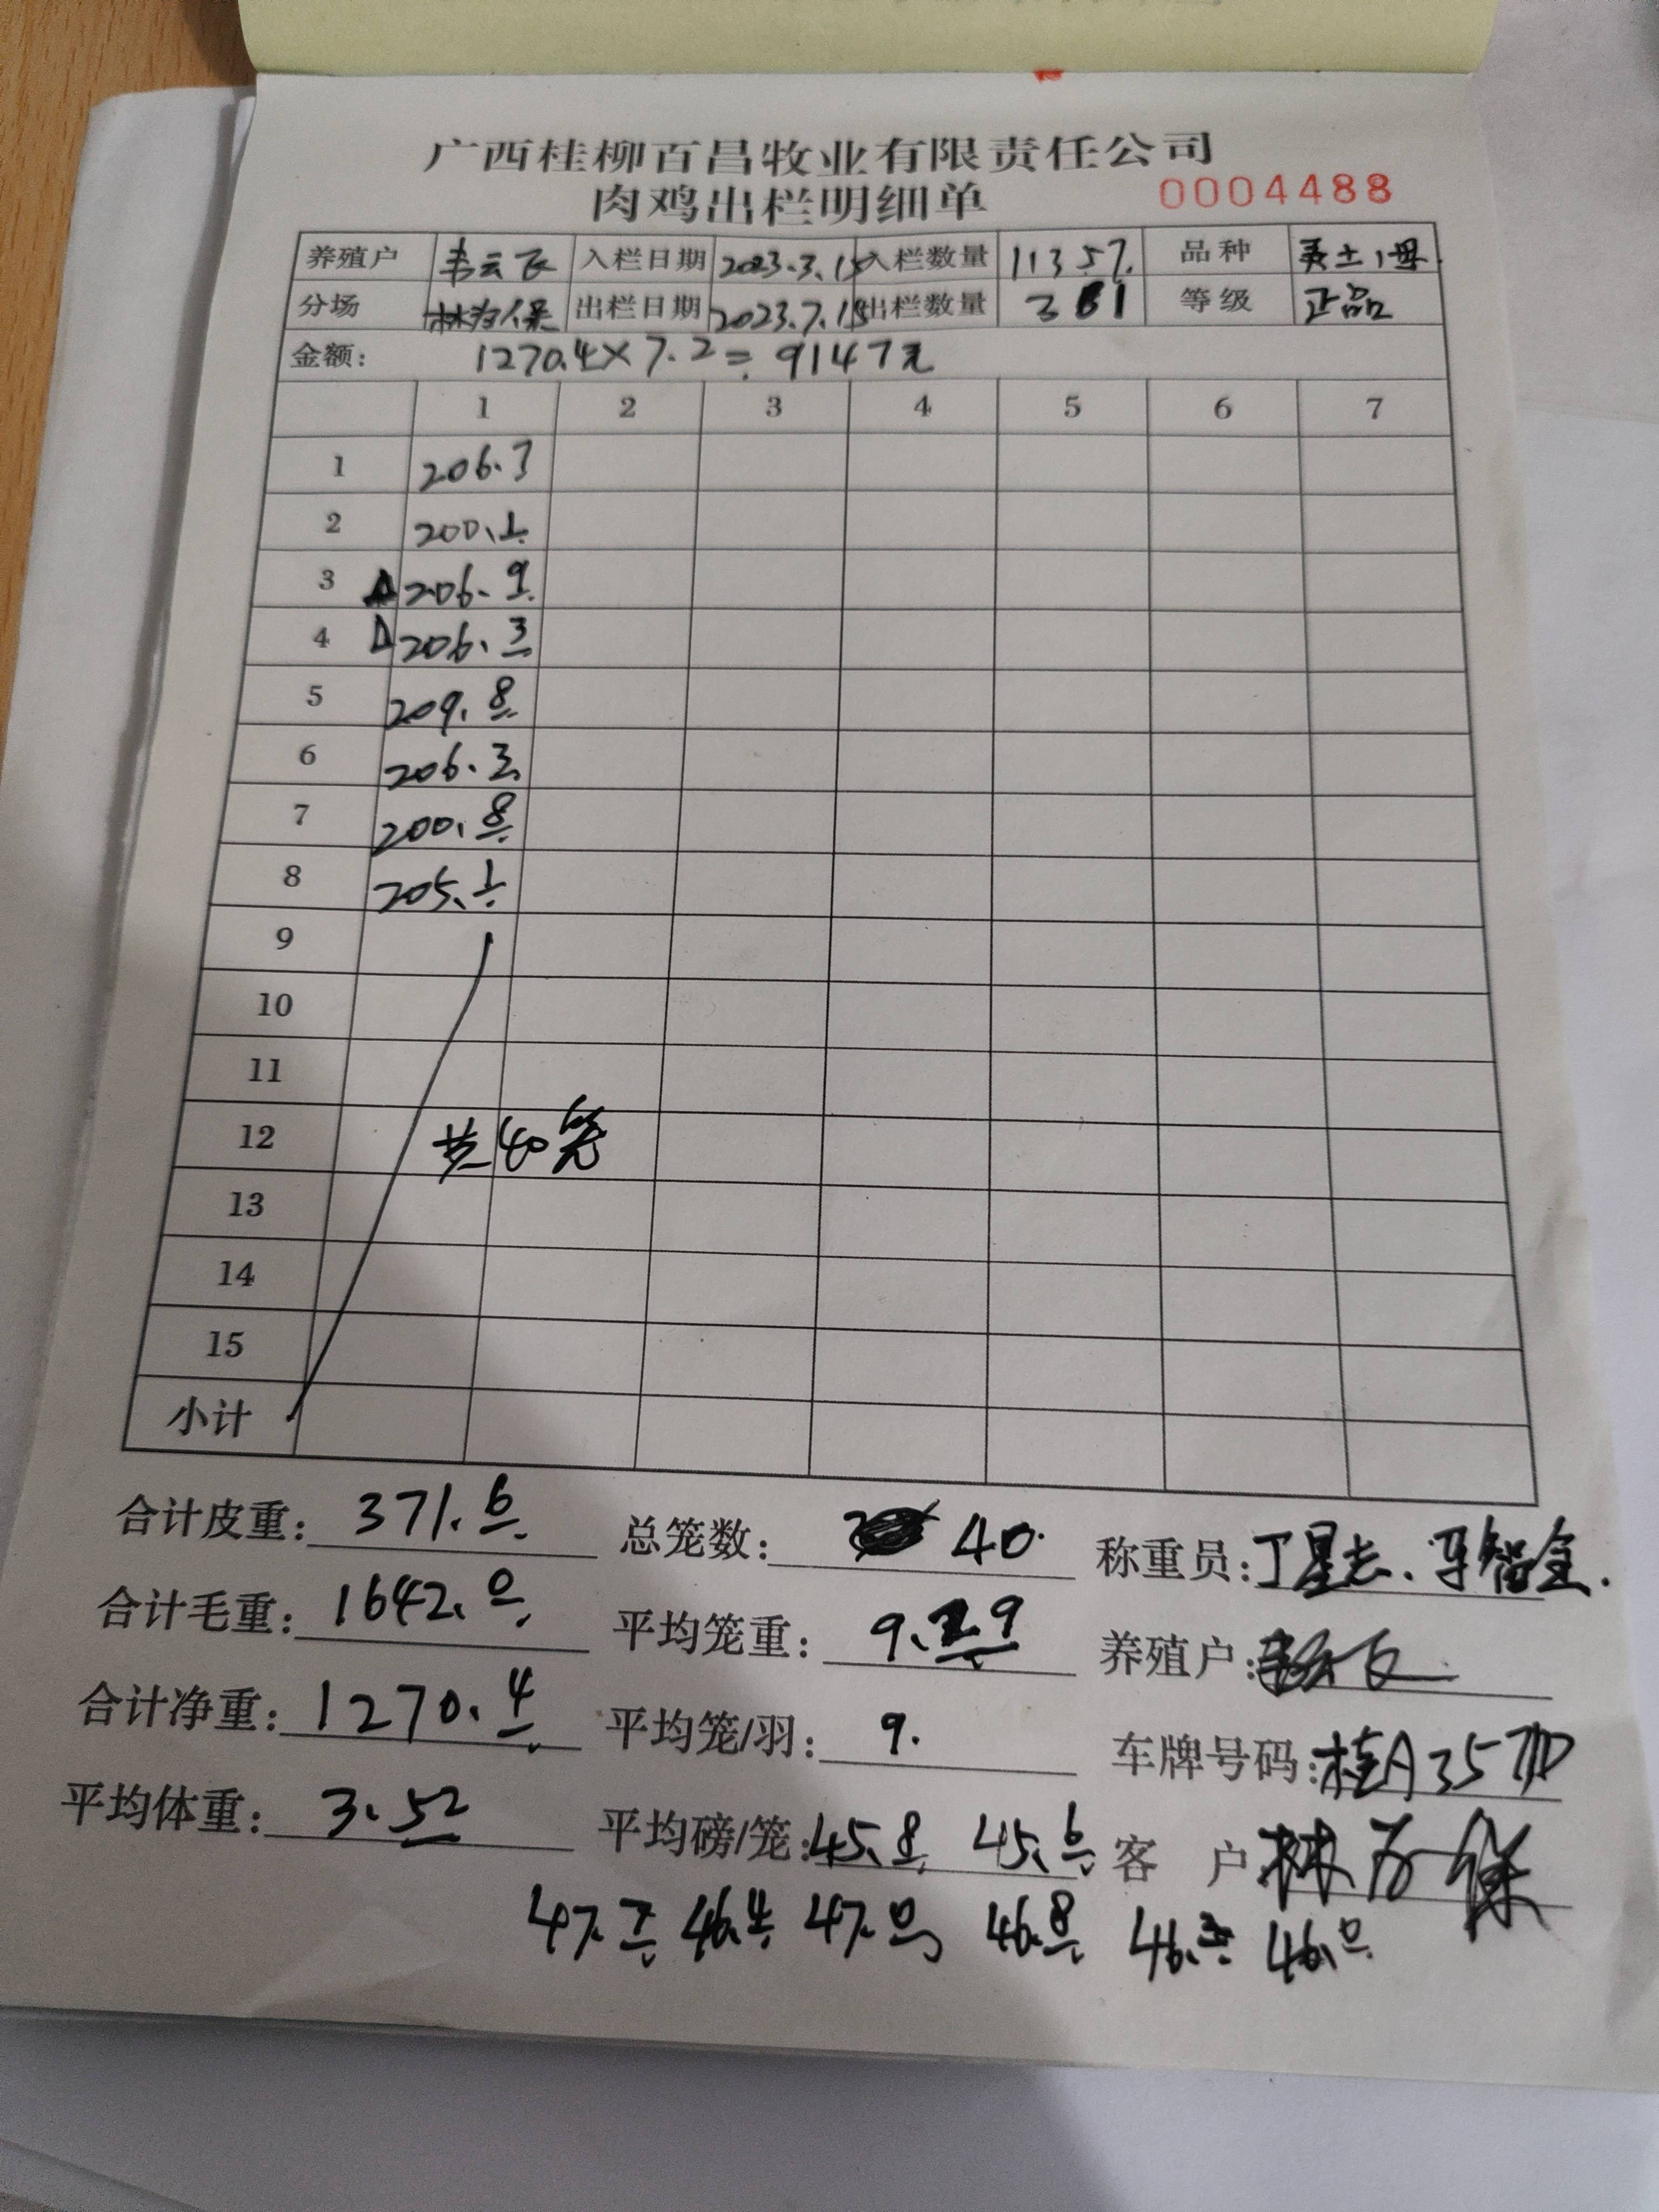 广西桂柳百昌牧业有限责任公司
肉鸡出栏明细单 0004488
养殖户 韦云飞 入栏日期 2023.3.15 入栏数量 11357. 品种
分场 出栏日期 2023.7.15 出栏数量 361 等级 正品
金额: 1270.4×7.2=9147元
1 2 3 4 5 6 7
1 206.7
2 200.1
3 △206.9
4 △206.3
5 209.8
6 206.3
7 200.8
8 205.1
9
10
11
12 共40笼
13
14
15
小计
合计皮重: 371.6 总笼数: 40. 称重员:
合计毛重: 1642.0 平均笼重: 9.29 养殖户:
合计净重: 1270.4 平均笼/羽: 9. 车牌号码: 桂A35
平均体重: 3.52 平均磅/笼: 45.8 45.6 客 户
46.4 47.0 46.8 46.0